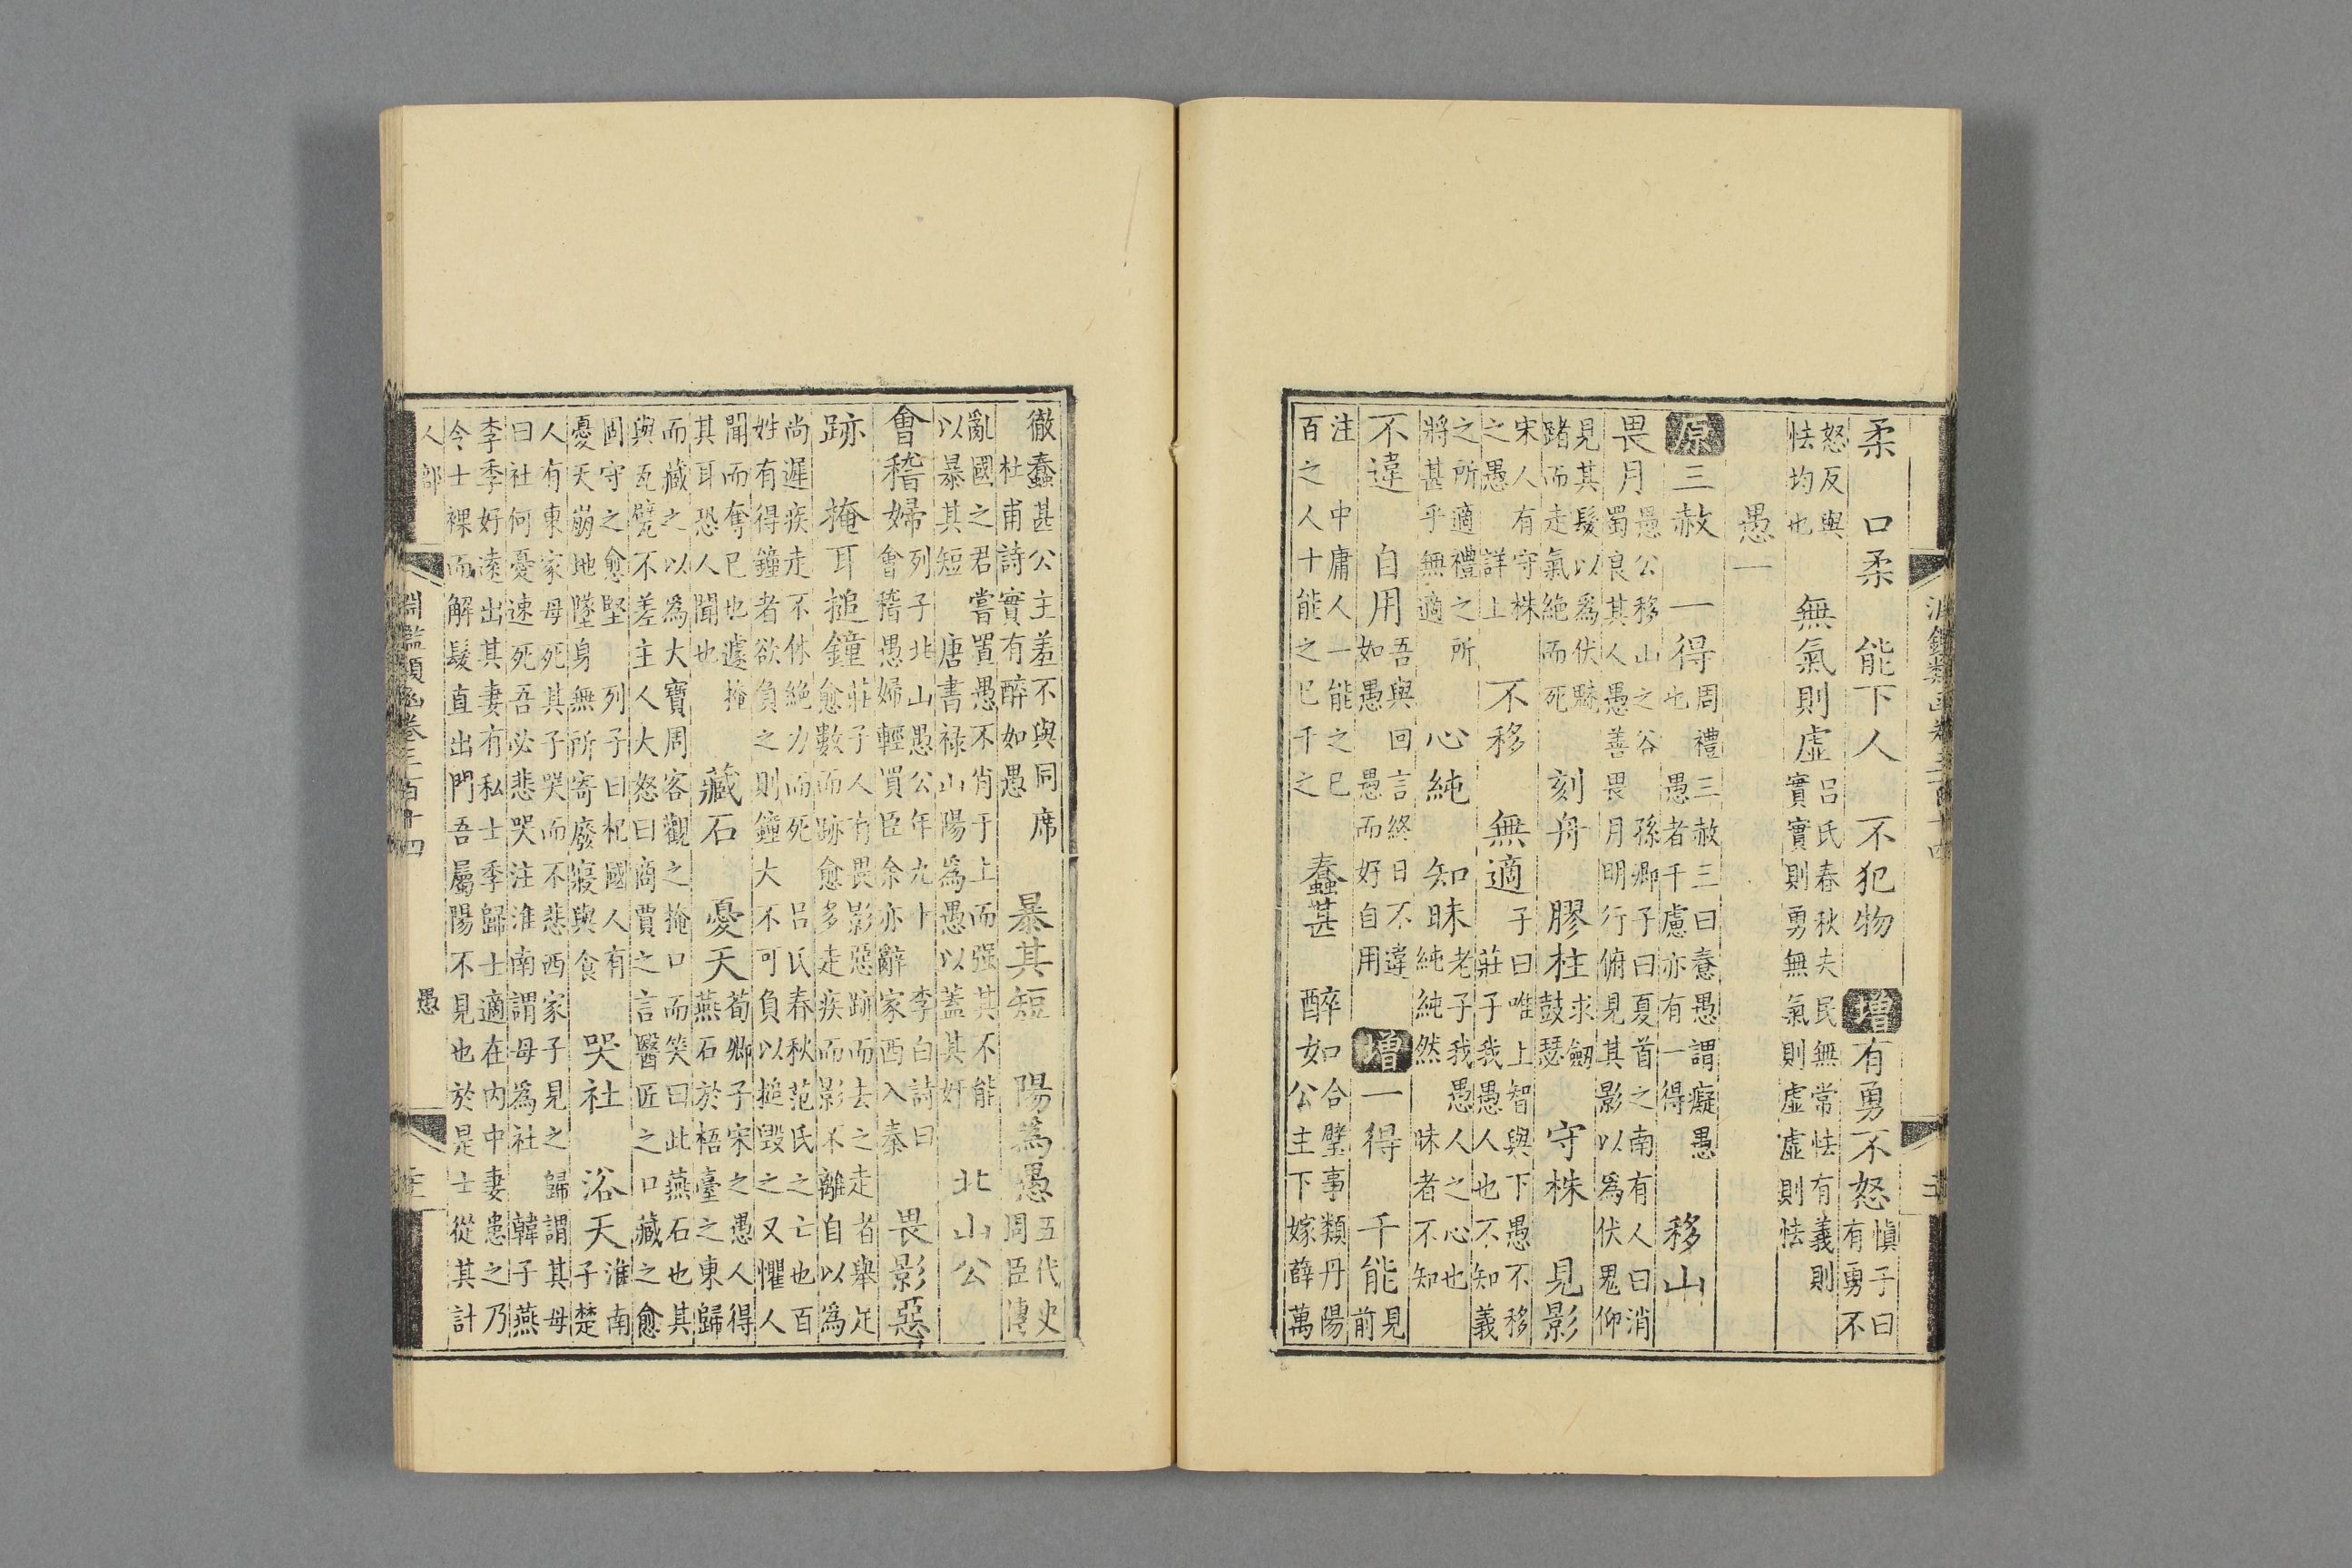 柔 口柔 能下人 不犯物 增 有勇不怒 慎子曰有勇不
怒反與怯均也 無氣則虛 呂氏春秋夫民無常怯有義則實實則勇無氣則虛虛則怯
愚一
原 三赦 一得 周禮三赦三曰憃愚謂癡愚也 愚者千慮亦有一得 移山
畏月 愚公移山之谷 孫卿子曰夏首之南有人曰消蜀良其人愚善畏月明行俯見其影以爲伏鬼仰
見其髮以爲伏魅踣而走氣絶而死 刻舟 膠柱 求劔鼓瑟 守株 見影
宋人有守株之愚 詳上 不移 無適 子曰唯上智與下愚不移莊子我愚人也不知義
之所適禮之所將甚乎無適 心純 知昧 老子我愚人之心也純純然 昧者不知
不違 自用 吾與回言終日不違如愚 愚而好自用 增 一得 千能 見前
注 中庸人一能之已百之人十能之已千之 蠢甚 醉如 合璧事類丹陽公主下嫁薛萬
徹蠢甚公主羞不與同席 杜甫詩實有醉如愚 暴其短 陽為愚 五代史周臣傳
亂國之君嘗置愚不肖于上而强其不能以暴其短 唐書祿山陽爲愚以蓋其奸 北山公
會稽婦 列子北山愚公年九十 李白詩曰會稽愚婦輕買臣余亦辭家西入秦 畏影惡
跡 掩耳搥鐘 莊子人有畏影惡跡而去之走者舉足愈數而跡愈多走疾而影不離自以為
尚遲疾走不休絶力而死 呂氏春秋范氏之亡也百姓有得鐘者欲負之則鐘大不可負以搥毀之又懼人
聞而奪已也遽掩其耳恐人聞也 藏石 憂天 荀卿子宋之愚人得燕石於梧臺之東歸
而藏之以爲大寶周客觀之掩口而笑曰此燕石也其與瓦甓不差主人大怒曰商賈之言醫匠之口藏之愈
固守之愈堅 列子曰杞國人有憂天崩地墜身無所寄廢寢與食 哭社 浴天 淮南子楚
人有東家母死其子哭而不悲西家子見之歸謂其母曰社何憂速死吾必悲哭注淮南謂母爲社 韓子燕
李季好遠出其妻有私士季歸士適在内中妻患之乃令士裸而解髮直出門吾屬陽不見也於是士從其計
人部 愚
淵鑑類函卷三百十四